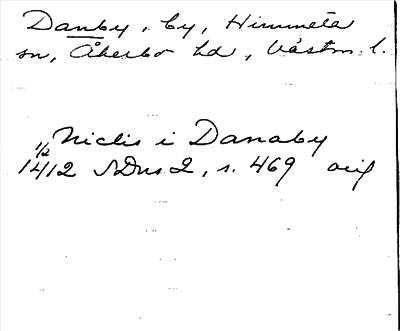 Danby, by, Himmeta
sn, Åkerbo hd, Västm. l.
Niclis i Danaby
1/2 1412 SDns 2, s. 469 orig